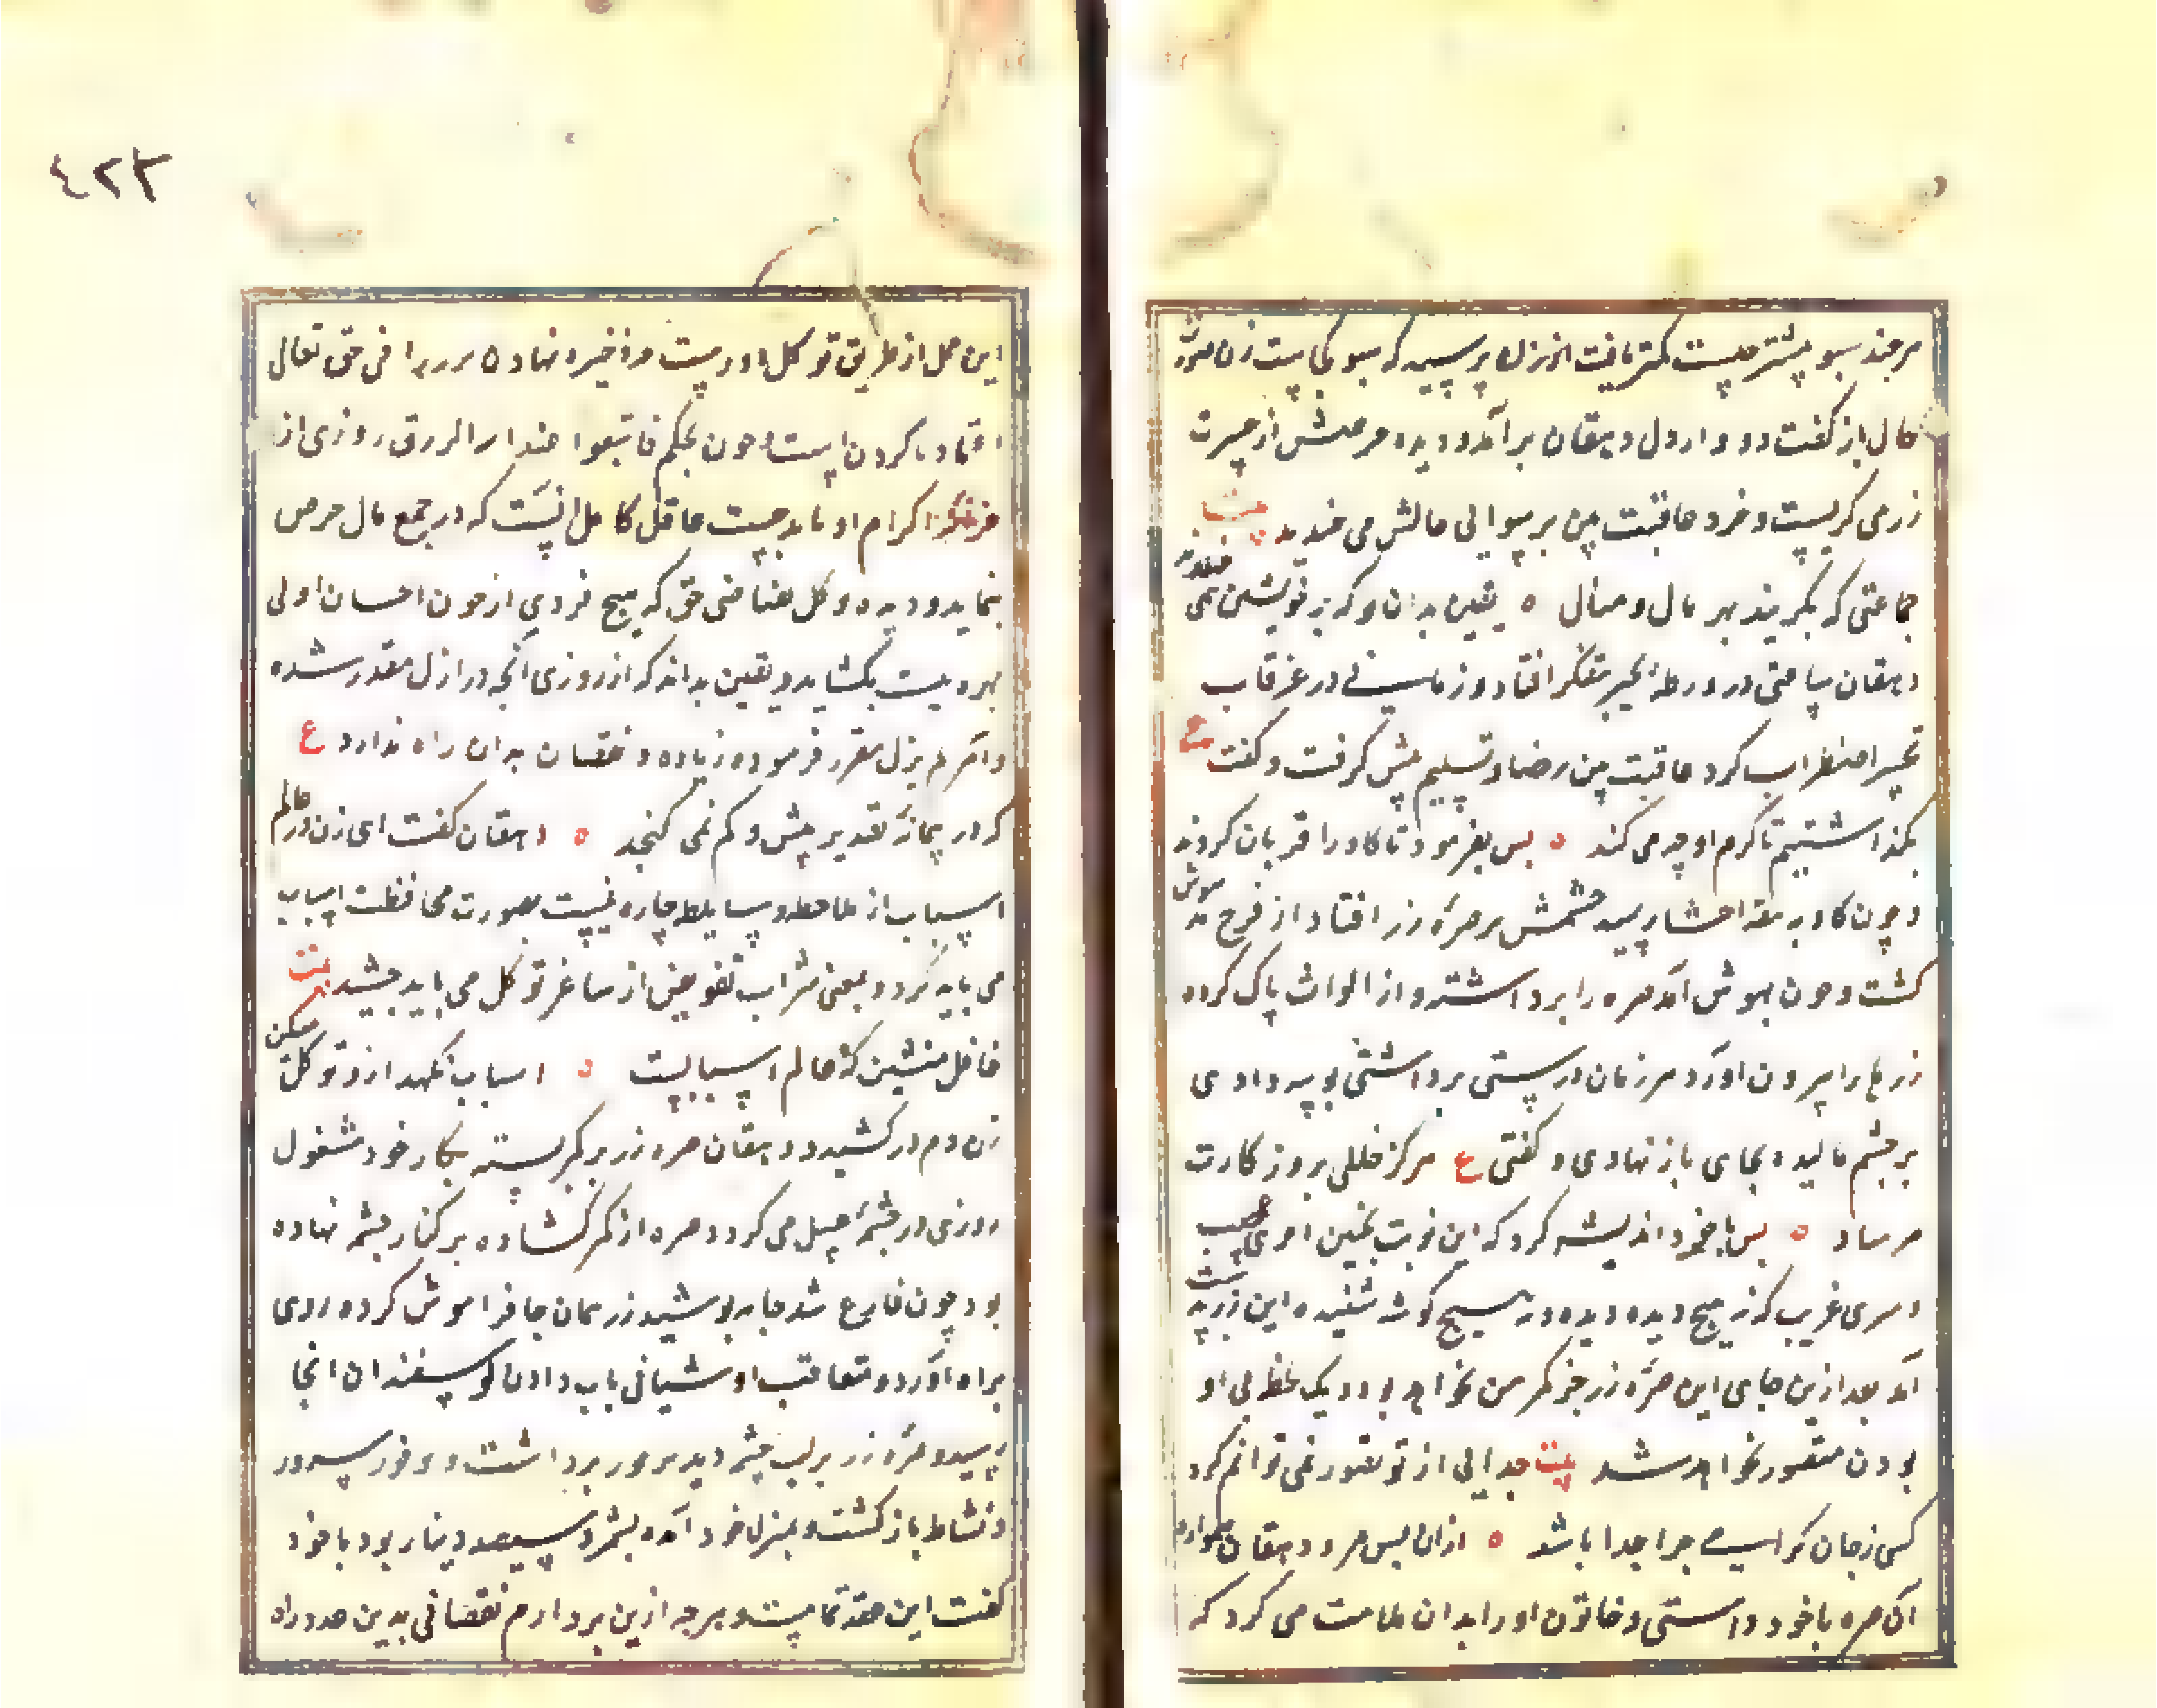 هرچند سبو بیشتر جست کمتر یافت از زن پرسید که سبو کجاست زن صورت
حال باز گفت دود از دل دهقان برآمد و دیده حرصش از حسرت
زر می گریست و خرد عاقبت بین بر رسوایی حالش می خندید بیت
جماعتی که بگریند بهر مال و منال ه یقین بدان تو که بر خویشتن همی خندند
دهقان ساعتی در ورطه تحیر متفکر افتاد و زمانی در غرقاب
تحسر اضطراب کرد عاقبت بین رضا و تسلیم پیش گرفت و گفت ع
بگذاشتیم تا کرم او چه می کند ه پس بفرمود تا گاو را قربان کردند
و چون گاو به احشا رسید چشمش بر صرهٔ زر افتاد از فرح مدهوش
گشت و چون بهوش آمد صره را برداشته و از الواث پاک کرده
زرها را بیرون آورد هر زمان درستی برداشتی و بوسه دادی
بر چشم مالیده بجای باز نهادی و گفتی ع هرگز خللی بروزگارت
مرساد ه پس با خود اندیشه کرد که این نوبت بچنین امری عجیب
و سری غریب که نه هیچ دیده دیده و نه هیچ گوش شنیده این زر بدست
آمد بعد ازین جای این صرهٔ زر جز کمر من نخواهد بود و یک لحظه بی او
بودن متصور نخواهد شد بیت جدایی از تو تصور نمی توانم کرد
کسی ز جان گرامی چرا جدا باشد ه ازان پس مرد دهقان همواره
آن صره با خود داشتی و خاتون او را بدان ملامت می کرد که
٤٢٢
این عمل از طریق توکل دورست ذخیره نهادن مر زر را فی حق تعالی
کردن است و چون بحکم فابتغوا عند الله الرزق روزی از
اکرام او باید جست عاقل کامل آنست که در جمع مال حرص
ننماید و دیده توکل حق که هیچ فردی از خون احسان او بی
بهره نیست بگشاید و یقین بداند که از روزی آنچه در ازل مقدر شده
لم یزل مقرر فرموده زیاده و نقصان بدان راه ندارد ع
که در پیمانهٔ تقدیر بیش و کم نمی گنجد ه دهقان گفت ای زن در عالم
اسباب از ملاحظه وسایط چاره نیست بصورت محافظت اسباب
می باید کرد و بمعنی شراب تفویض از ساغر توکل می باید چشید بیت
غافل منشین که عالم اسبابست ه اسباب نگهدار و توکل میکن
زن دم در کشید و دهقان صره زر بر کمر بسته بکار خود مشغول
روزی در چشمهٔ غسل می کرد و صره از کمر گشاده بر کنار چشمه نهاده
بود چون فارغ شد جامه پوشید زر همان جا فراموش کرده روی
براه آورد و متعاقب او شبانی بآب دادن گوسفندان آنجا
رسید و صرهٔ زر بر لب چشمه دید بر فور برداشت و وفور سرور
و نشاط بازگشت و بمنزل خود آمده بشمرد سیصد دینار بود با خود
گفت این عقد تمامیست و هرچه ازین بردارم نقصانی بدین عدد راه